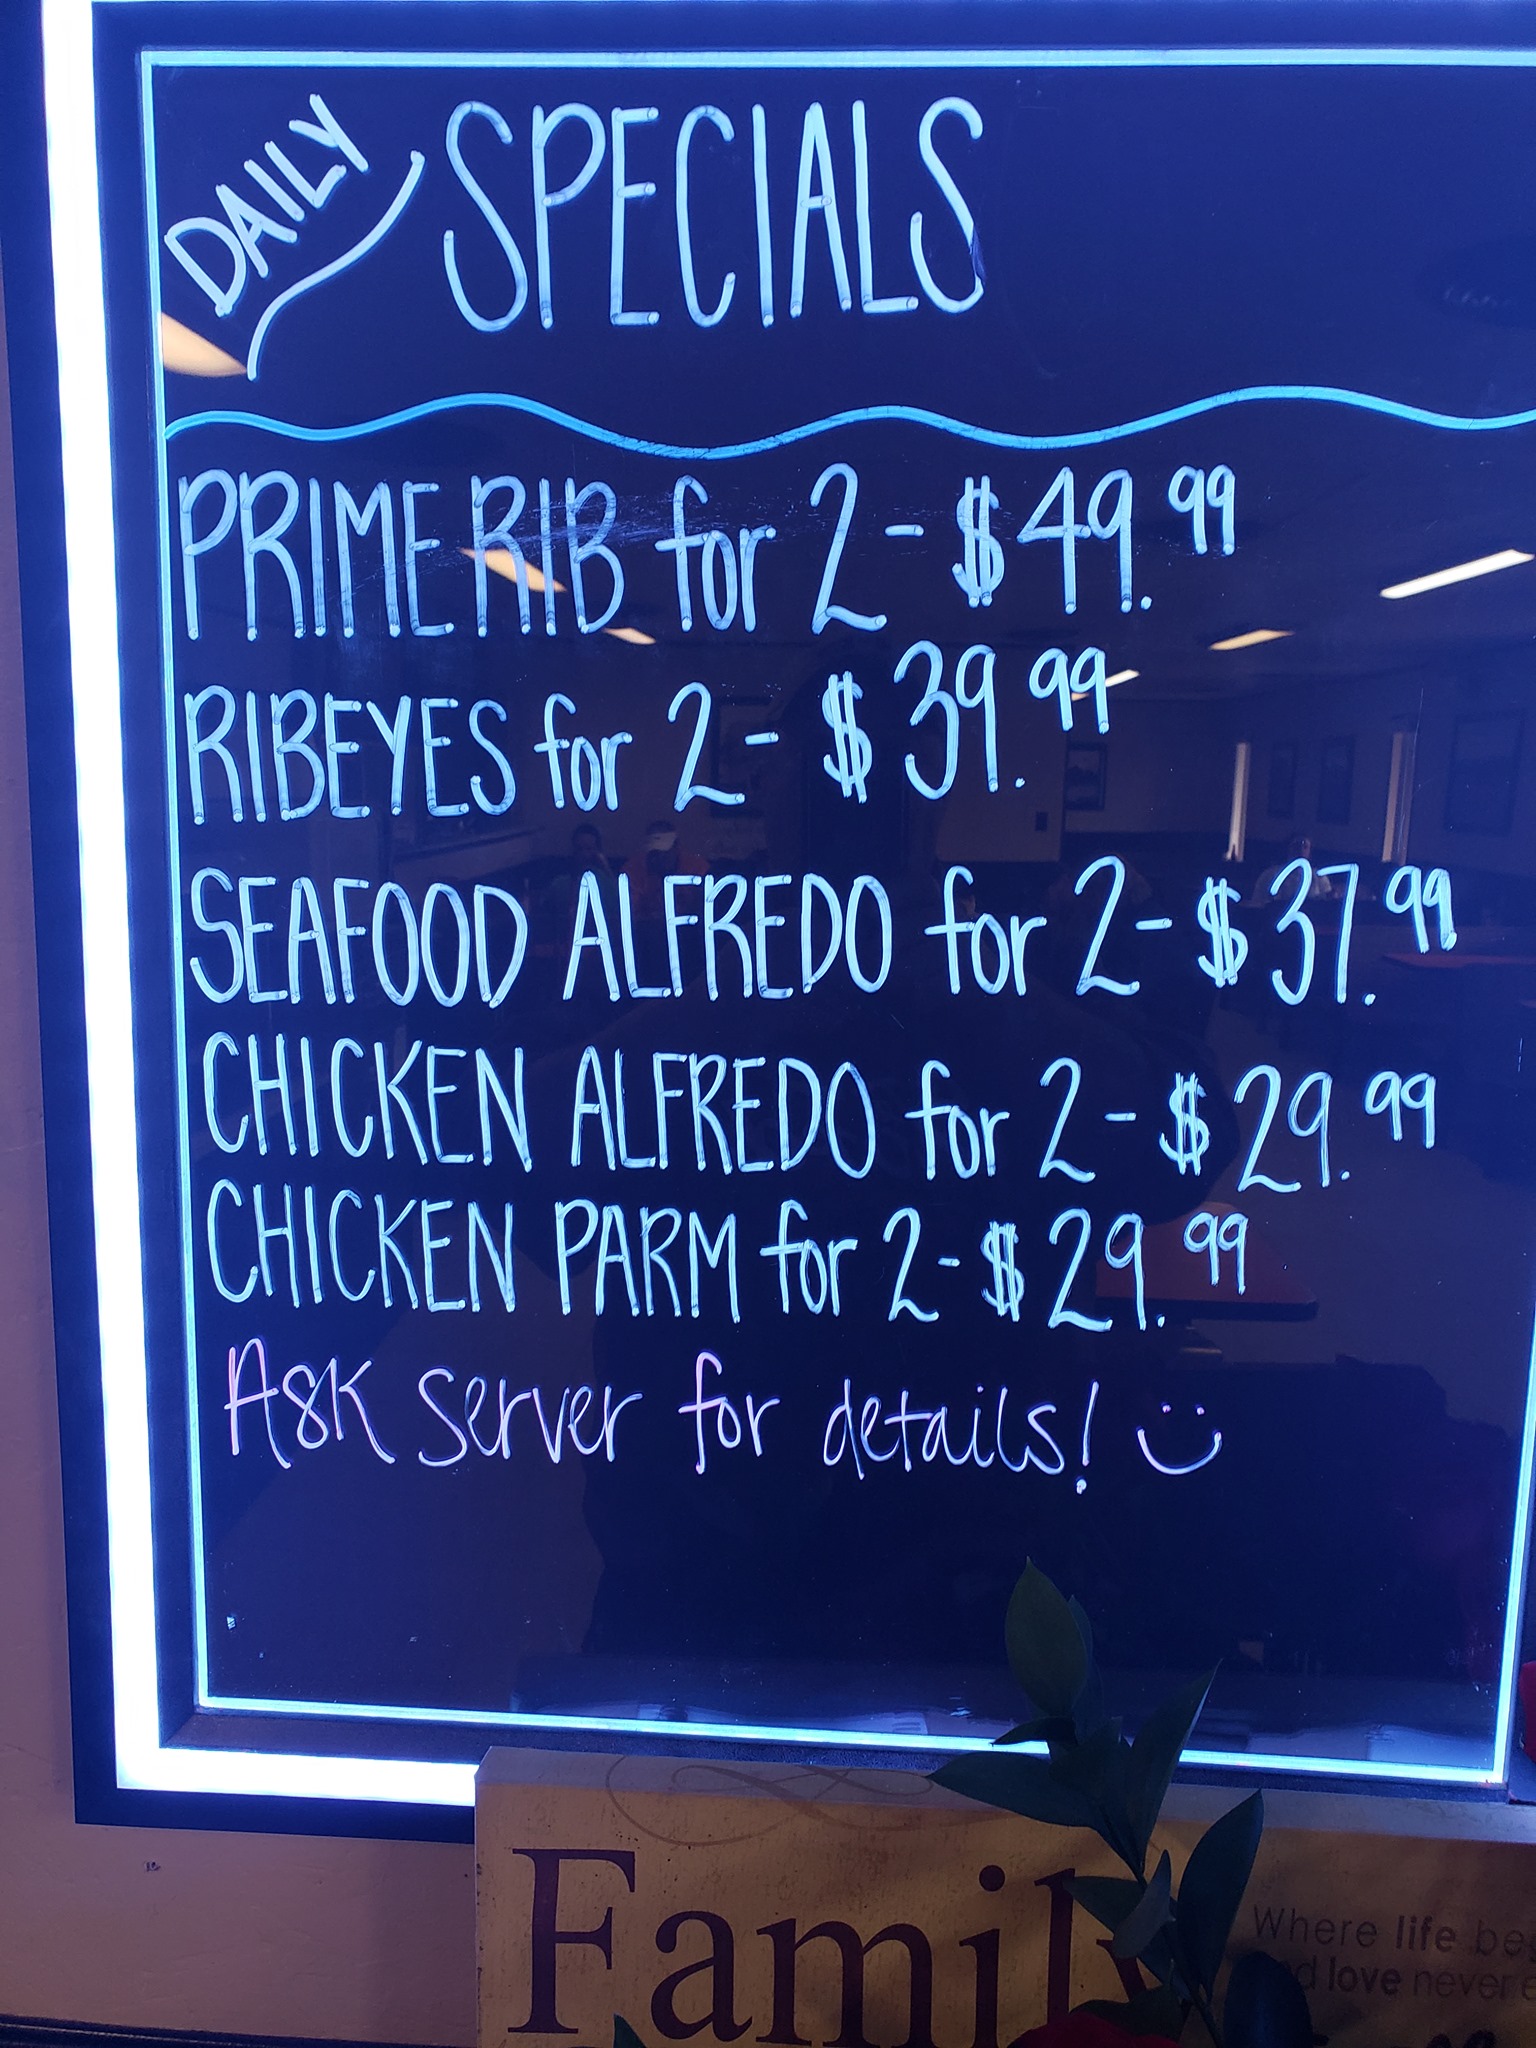 DAILY SPECIALS
PRIME RIB for 2 - $49.99
RIBEYES for 2 - $39.99
SEAFOOD ALFREDO for 2 - $37.99
CHICKEN ALFREDO for 2 - $29.99
CHICKEN PARM for 2 - $29.99
Ask server for details!
Family
Where life
love never